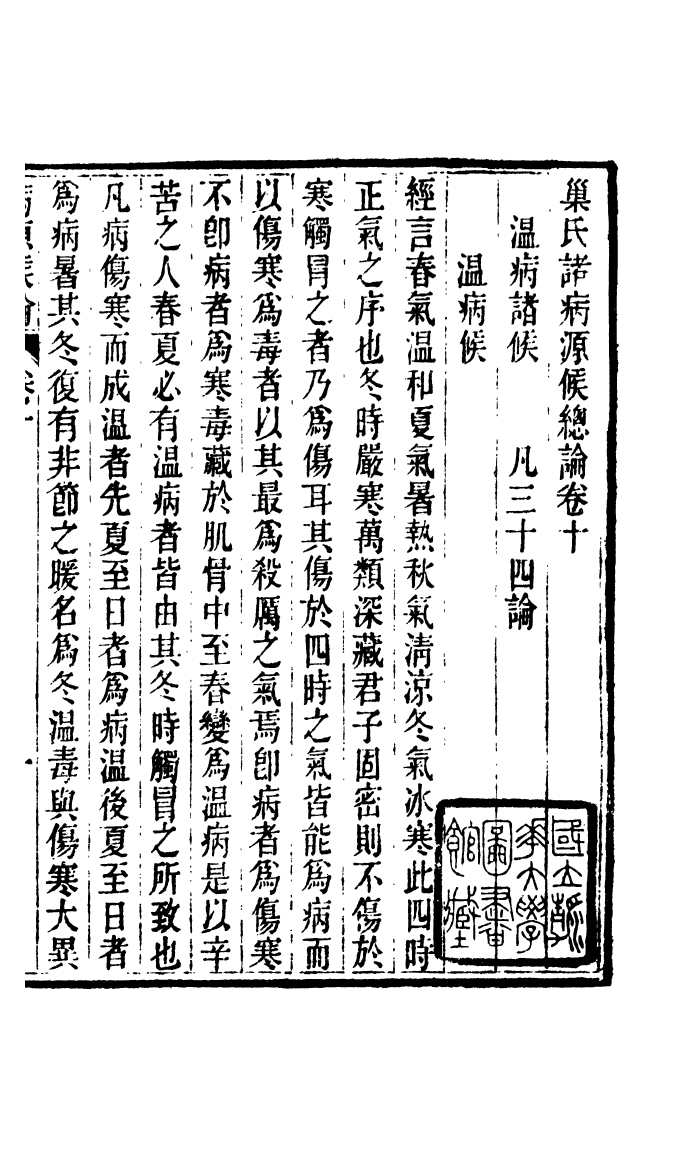 巢氏諸病源候總論卷十
温病諸候　凡三十四論
温病候
經言春氣温和夏氣暑熱秋氣清涼冬氣冰寒此四時
正氣之序也冬時嚴寒萬類深藏君子固密則不傷於
寒觸冒之者乃爲傷耳其傷於四時之氣皆能爲病而
以傷寒爲毒者以其最爲殺厲之氣焉卽病者爲傷寒
不卽病者爲寒毒藏於肌骨中至春變爲温病是以辛
苦之人春夏必有温病者皆由其冬時觸冒之所致也
凡病傷寒而成温者先夏至日者爲病温後夏至日者
爲病暑其冬復有非節之暖名爲冬温毒與傷寒大異
國立
大學
圖書
館藏